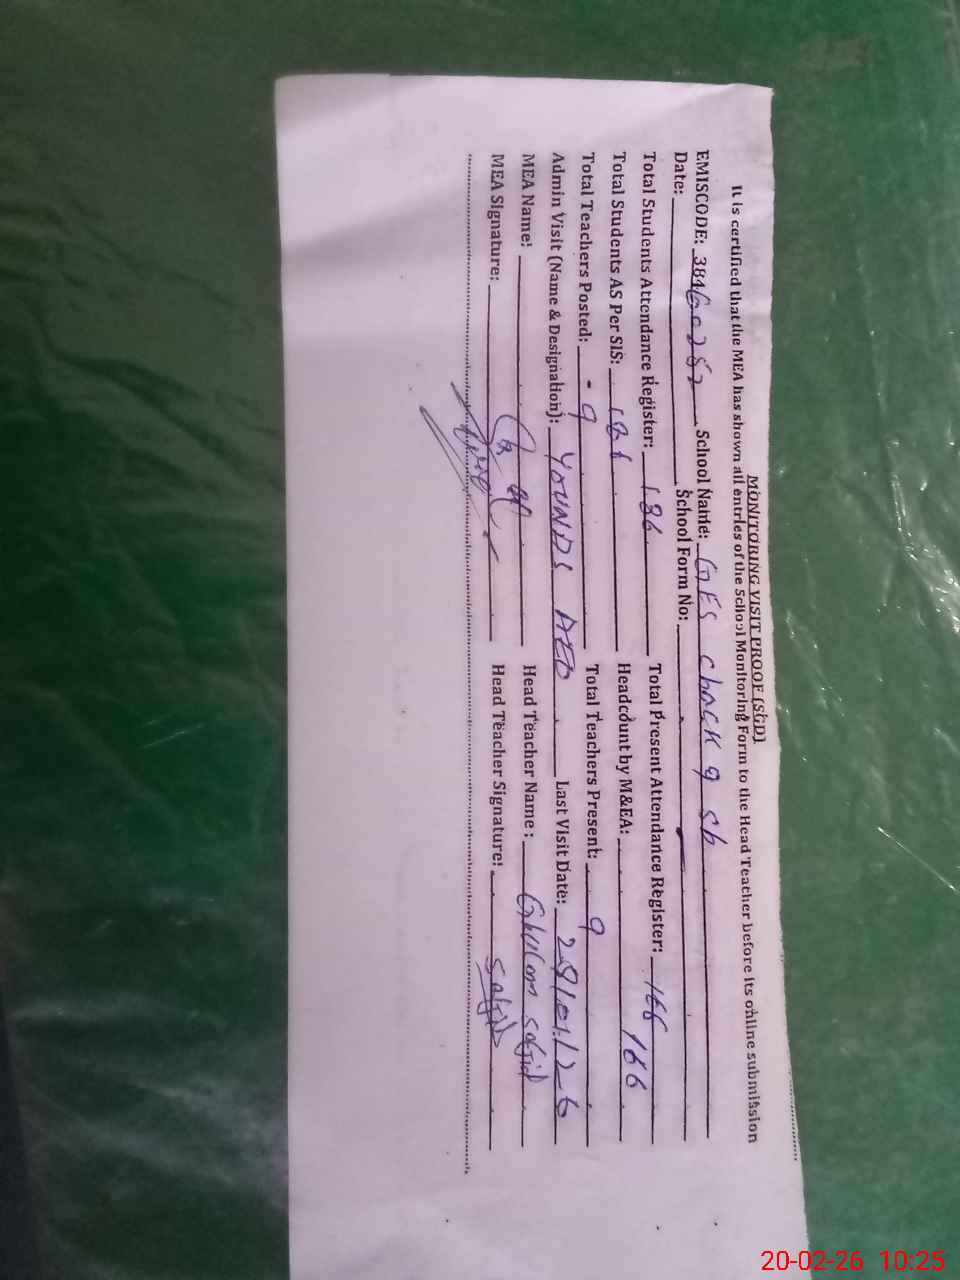 MONITORING VISIT PROOF (SGD)
It is certified that the MEA has shown all entries of the School Monitoring Form to the Head Teacher before its online submission
EMISCODE: School Name: GES chack 9 sb
Date: School Form No:
Total Students Attendance Register: 186 Total Present Attendance Register: 166
Total Students AS Per SIS: 181 Headcount by M&EA: 166
Total Teachers Posted: - 9 Total Teachers Present: 9
Admin Visit (Name & Designation): YOUNDS AEO Last Visit Date: 29/01/26
MEA Name: Head Teacher Name : Ghulam Sajid
MEA Signature: Head Teacher Signature: Sajid
20-02-26 10:25